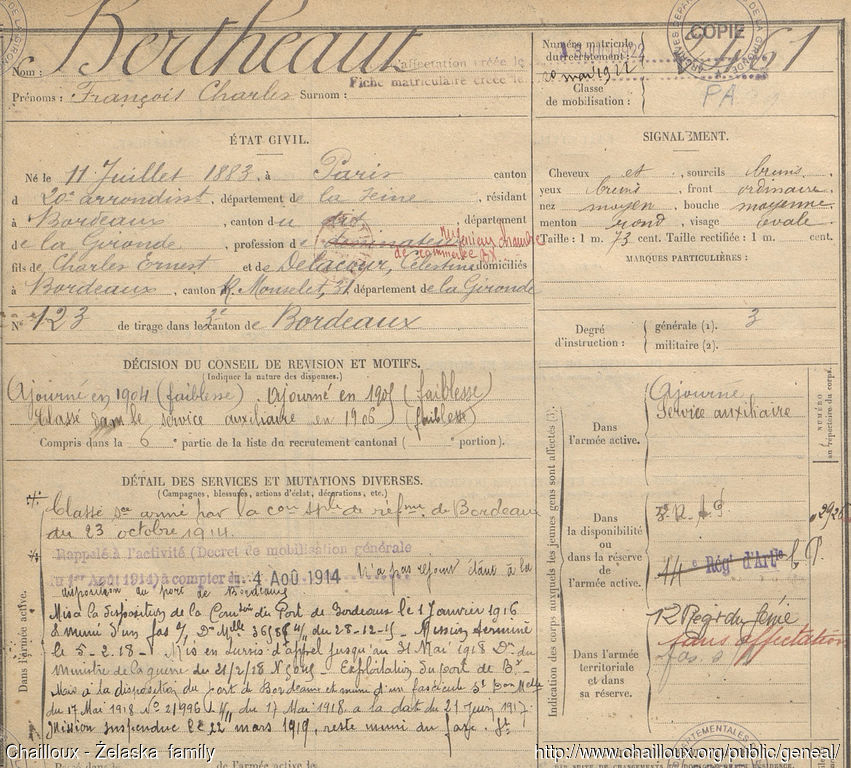 Nom : Bertheaut
affectation créée le
Fiche matriculaire créée le
Prénoms : François Charles Surnom :
Numéro matricule
du recrutement :
20 mai 1922
461
COPIE
Classe
de mobilisation :
PA
ÉTAT CIVIL.
Né le 11 Juillet 1883, à Paris canton
d 20e arrondisst, département de la Seine, résidant
à Bordeaux, canton du dit département
de la Gironde, profession de
de commerce Bx
fils de Charles Ernest et de Delacour, Célestine domiciliés
à Bordeaux, canton R. Monselet, 31 département de la Gironde
N° 123 de tirage dans le 3e canton de Bordeaux
SIGNALEMENT.
Cheveux et, sourcils bruns
yeux bruns, front ordinaire
nez moyen, bouche moyenne
menton rond, visage ovale
Taille : 1 m. 73 cent. Taille rectifiée : 1 m. cent.
MARQUES PARTICULIÈRES :
Degré
d'instruction :
générale (1). 3
militaire (2).
DÉCISION DU CONSEIL DE REVISION ET MOTIFS.
(Indiquer la nature des dispenses.)
Ajourné en 1904 (faiblesse). Ajourné en 1905 (faiblesse)
Classé dans le service auxiliaire en 1906 (faiblesse)
Compris dans la 6e partie de la liste du recrutement cantonal ( e portion).
DÉTAIL DES SERVICES ET MUTATIONS DIVERSES.
(Campagnes, blessures, actions d'éclat, décorations, etc.)
Classé Sce armé par la con sple de réfme de Bordeaux
du 23 octobre 1914.
Rappelé à l'activité (Décret de mobilisation générale
du 1er Août 1914) à compter du 4 AOÛ 1914 N'a pas rejoint étant à la
disposition du port de Bordeaux
Mis à la disposition de la du Port de Bordeaux le 1 Janvier 1916
& muni d'un fas du 28-12-15 - Mission terminée
le 5-2-18 - Mis en sursis d'appel jusqu'au 31 Mai 1918 Dn du
Ministre de la guerre du 21/2/18 - Exploitation du port de Bx -
Mis à la disposition du port de Bordeaux et muni d'un fascicule
du 17 Mai 1918 N° 21996 du 17 Mai 1918 à la date du 21 Juin 1917
Mission suspendue le 22 mars 1919, reste muni du fasc.
Dans l'armée active.
Indication des corps auxquels les jeunes gens sont affectés (3).
NUMÉRO
au répertoire du corps.
Dans
l'armée active.
Ajourné
Service auxiliaire
Dans
la disponibilité
ou
dans la réserve
de
l'armée active.
14e Régt d'Artie
Dans l'armée
territoriale
et dans
sa réserve.
sans affectation
Chailloux - Żelaska family
http://www.chailloux.org/public/geneal/